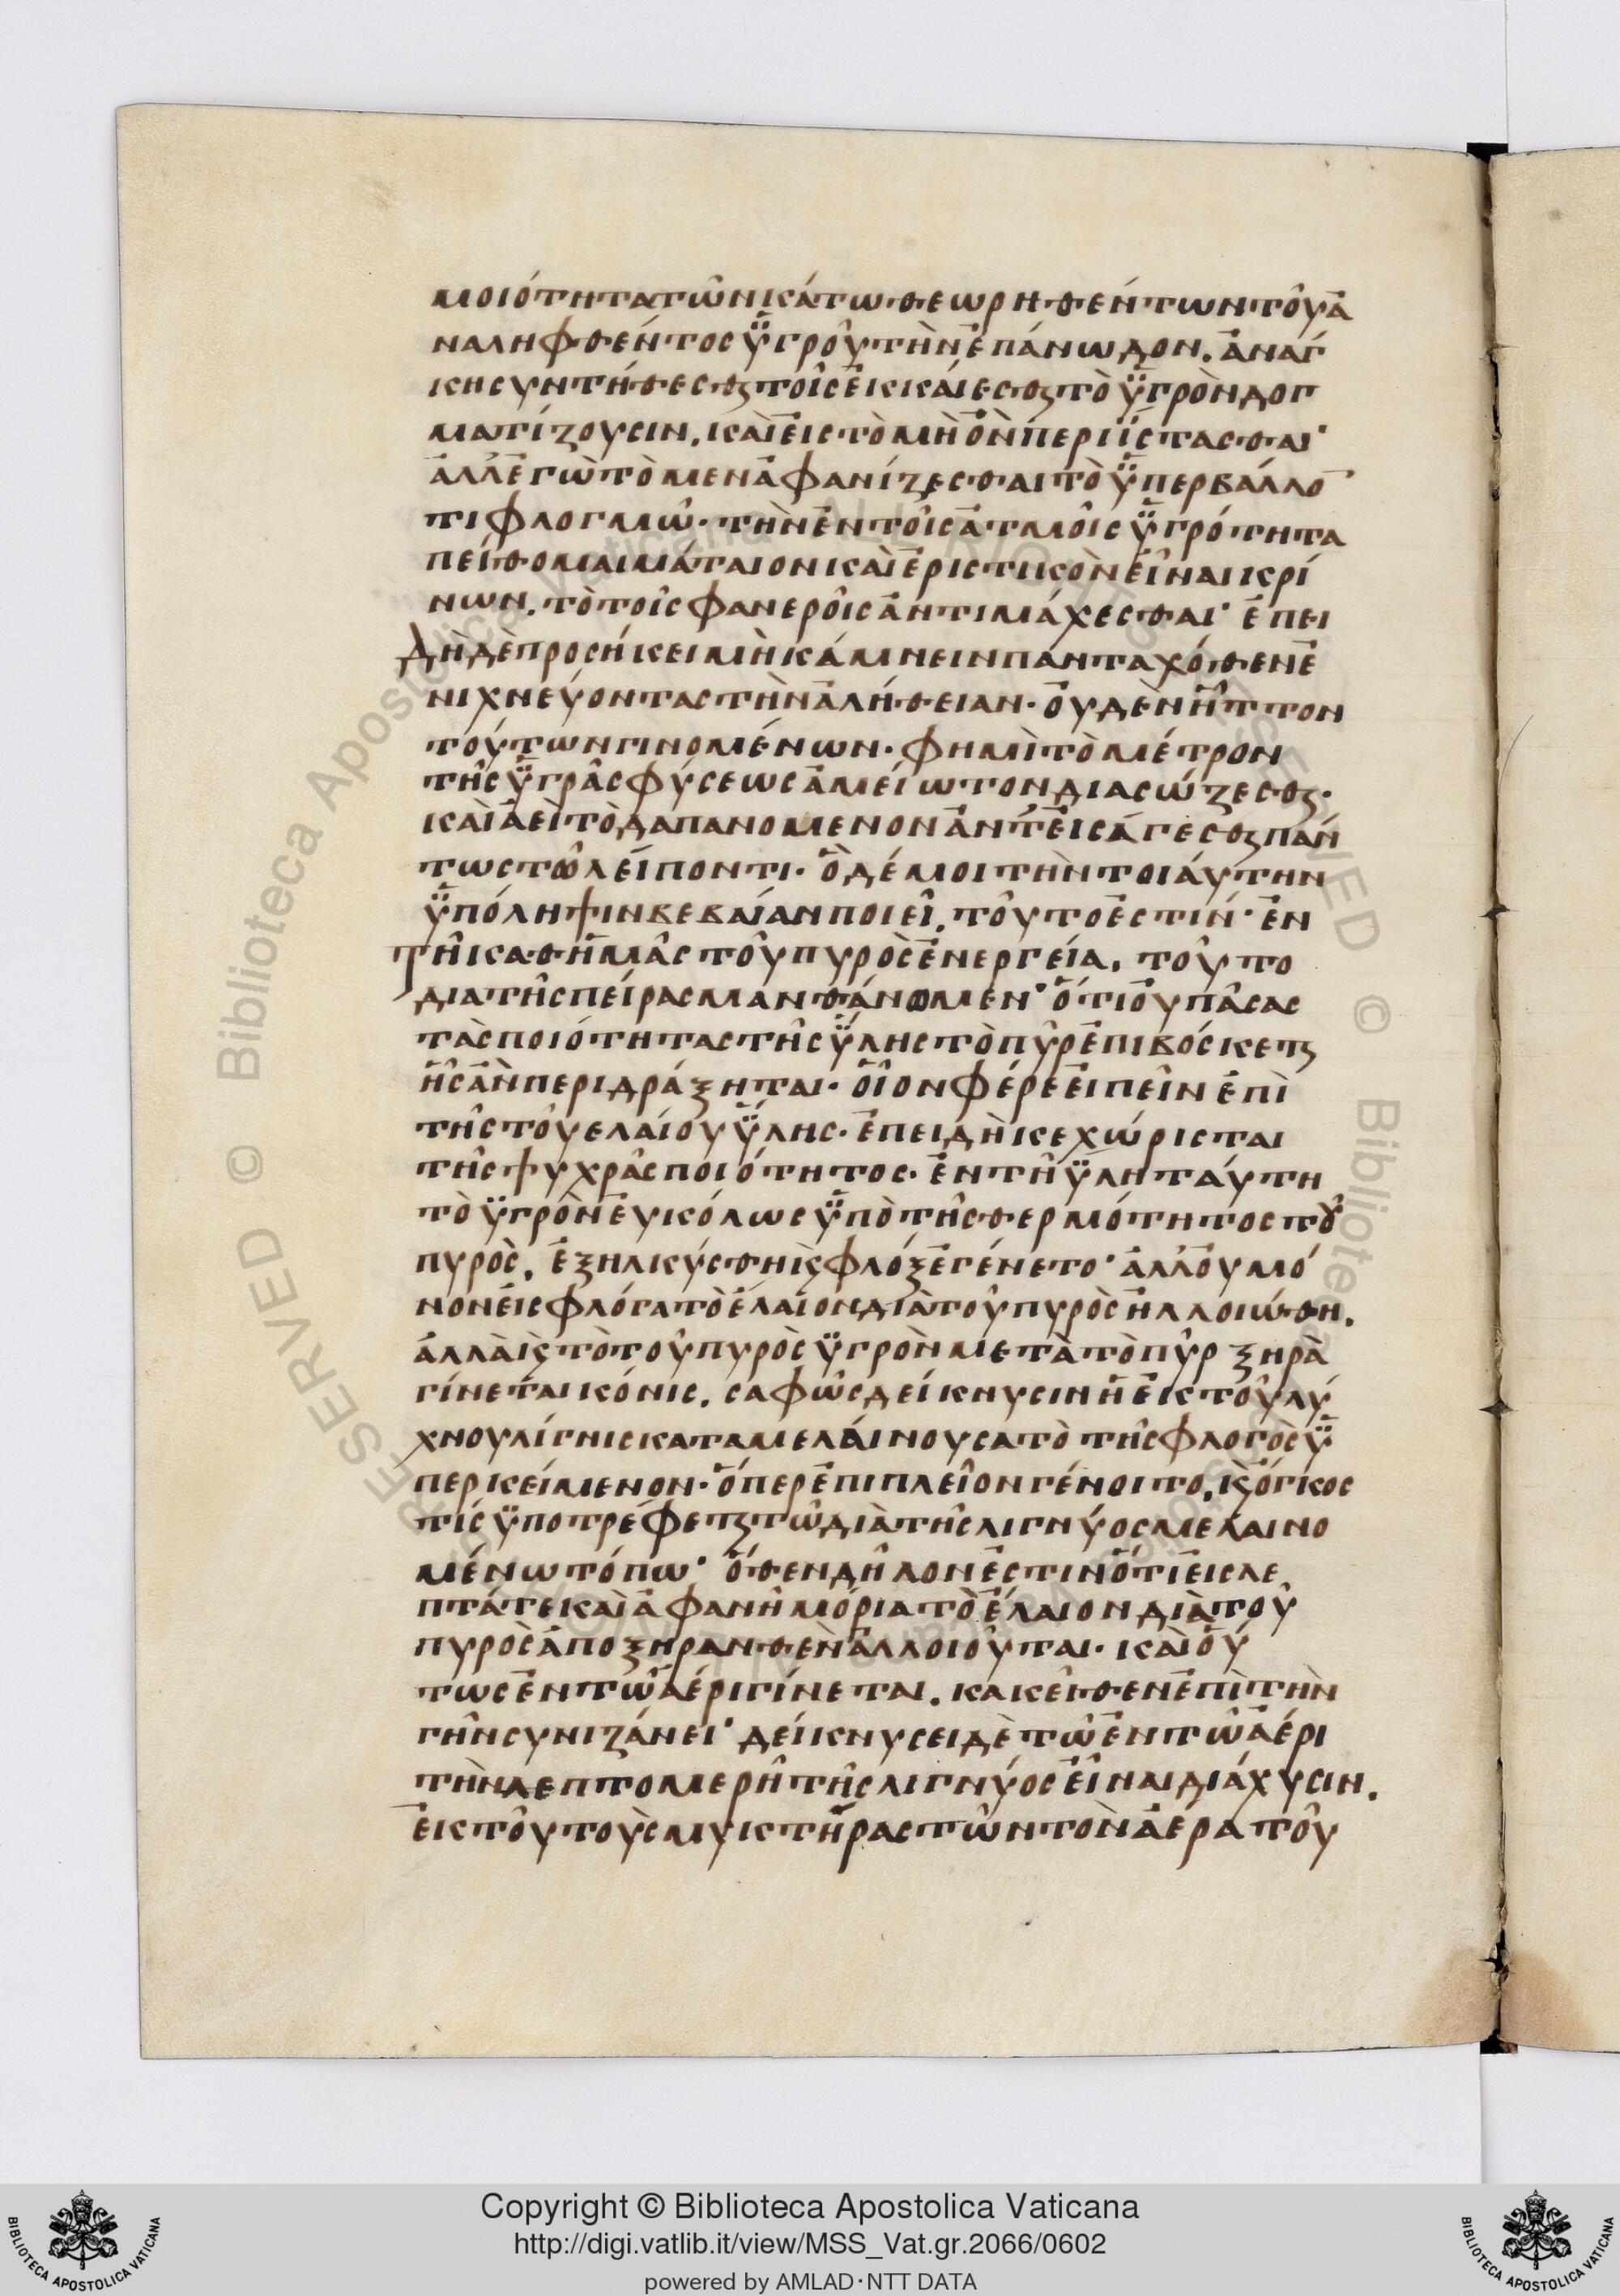 μοιότητα τῶν κάτω θεωρηθέντων τοῦ ἀ
ναληφθέντος ὑγροῦ τὴν ἐπάνωδον. ἀναγ
κη συντήθεσθαι τοῖς ἐκκαίεσθαι τὸ ὑγρὸν δογ
ματίζουσιν. καὶ εἰς τὸ μὴ ὂν περιΐστασθαι·
ἀλλ' ἐγὼ τὸ μεν ἀφανίζεσθαι τὸ ὑπερβάλλο̅
τι φλογμῶ· τὴν ἐν τοῖς ἀτμοῖς ὑγρότητα
πείθομαι μάταιον καὶ ἐριστικὸν εἶναι κρί
νων. τὸ τοῖς φανεροῖς ἀντιμάχεσθαι· ἐπει
δὴ δὲ προσήκει μὴ κάμνειν πάνταχόθεν ἐ
νιχνεύοντας τὴν ἀλήθειαν· οὐδὲν ἧττον
τούτων γινομένων· φημὶ τὸ μέτρον
τῆς ὑγρᾶς φύσεως ἀμείωτον διασώζεσθαι·
καὶ ἀεὶ τὸ δαπανομενον ἀντεισάγεσθαι πάν
τως τῶ λείποντι· ὃ δέ μοι τὴν τοιάυτην
ὑπόληψιν βεβαίαν ποιεῖ. τοῦτο ἐστιν· ἐν
τῆ καθ ἡμᾶς τοῦ πυρὸς ἐνεργεία. τοῦτο
δια τῆς πείρας μανθάνωμεν· ὅτι οὐ πᾶσας
τὰς ποιότητας τῆς ὕλης τὸ πῦρ ἐπιβόσκεται
ἧς ἂν περιδράξηται· οἷον φέρε εἰπεῖν ἐπὶ
τῆς τοῦ ελαίου ὕλης· ἐπειδὴ κεχώρισται
τῆς ψυχρᾶς ποιότητος· ἐν τῆ ὕλη ταύτη
τὸ ὑγρὸν ἐυκόλως ὑπὸ τῆς θερμότητος τοῦ
πυρὸς, ἐξηλκύσθη καὶ φλόξ ἐγένετο· ἀλλ' οὐ μό
νον εἰς φλόγα τὸ ἔλαιον διὰ τοῦ πυρὸς ἠλλοιώθη.
ἀλλὰ καὶ τὸ τοῦ πυρὸς ὑγρὸν μετὰ τὸ πῦρ ξηρὰ
γίνεται κόνις. σαφῶς δείκνυσιν ἡ ἐκ τοῦ λύ
χνου λίγνις καταμελάινουσα τὸ τῆς φλογὸς ὑ
περκείμενον· ὅπερ ἐπιπλεῖον γένοιτο, καὶ ὄγκος
τίς ὑποτρέφεται τῶ διὰ τῆς λιγνύος μελαινο
μένω τόπω· ὅθεν δῆλον ἐστιν ὅτι εἰς λε
πτά τε καὶ ἀφανῆ μόρια τὸ ἔλαιον διὰ τοῦ
πυρὸς ἀποξηρανθὲν ἀλλοιοῦται· καὶ οὕ
τως ἐν τῶ ἀέρι γίνεται. κακεῖθεν ἐπὶ τὴν
γῆν συνιζάνει· δείκνυσει δὲ τῶ ἐν τῶ ἀέρι
τὴν λεπτομερῆ τῆς λιγνύος εἶναι διάχυσιν.
ἐκ τοῦ τοὺς μυκτῆρας τῶν τὸν ἀέρα τοῦ
Copyright © Biblioteca Apostolica Vaticana
http://digi.vatlib.it/view/MSS_Vat.gr.2066/0602
powered by AMLAD·NTT DATA
BIBLIOTECA APOSTOLICA VATICANA
BIBLIOTECA APOSTOLICA VATICANA